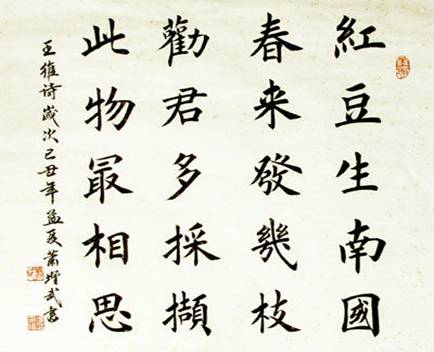 紅豆生南國
春来發幾枝
勸君多採擷
此物最相思
王維詩歲次己丑年孟夏蕭㙓武書